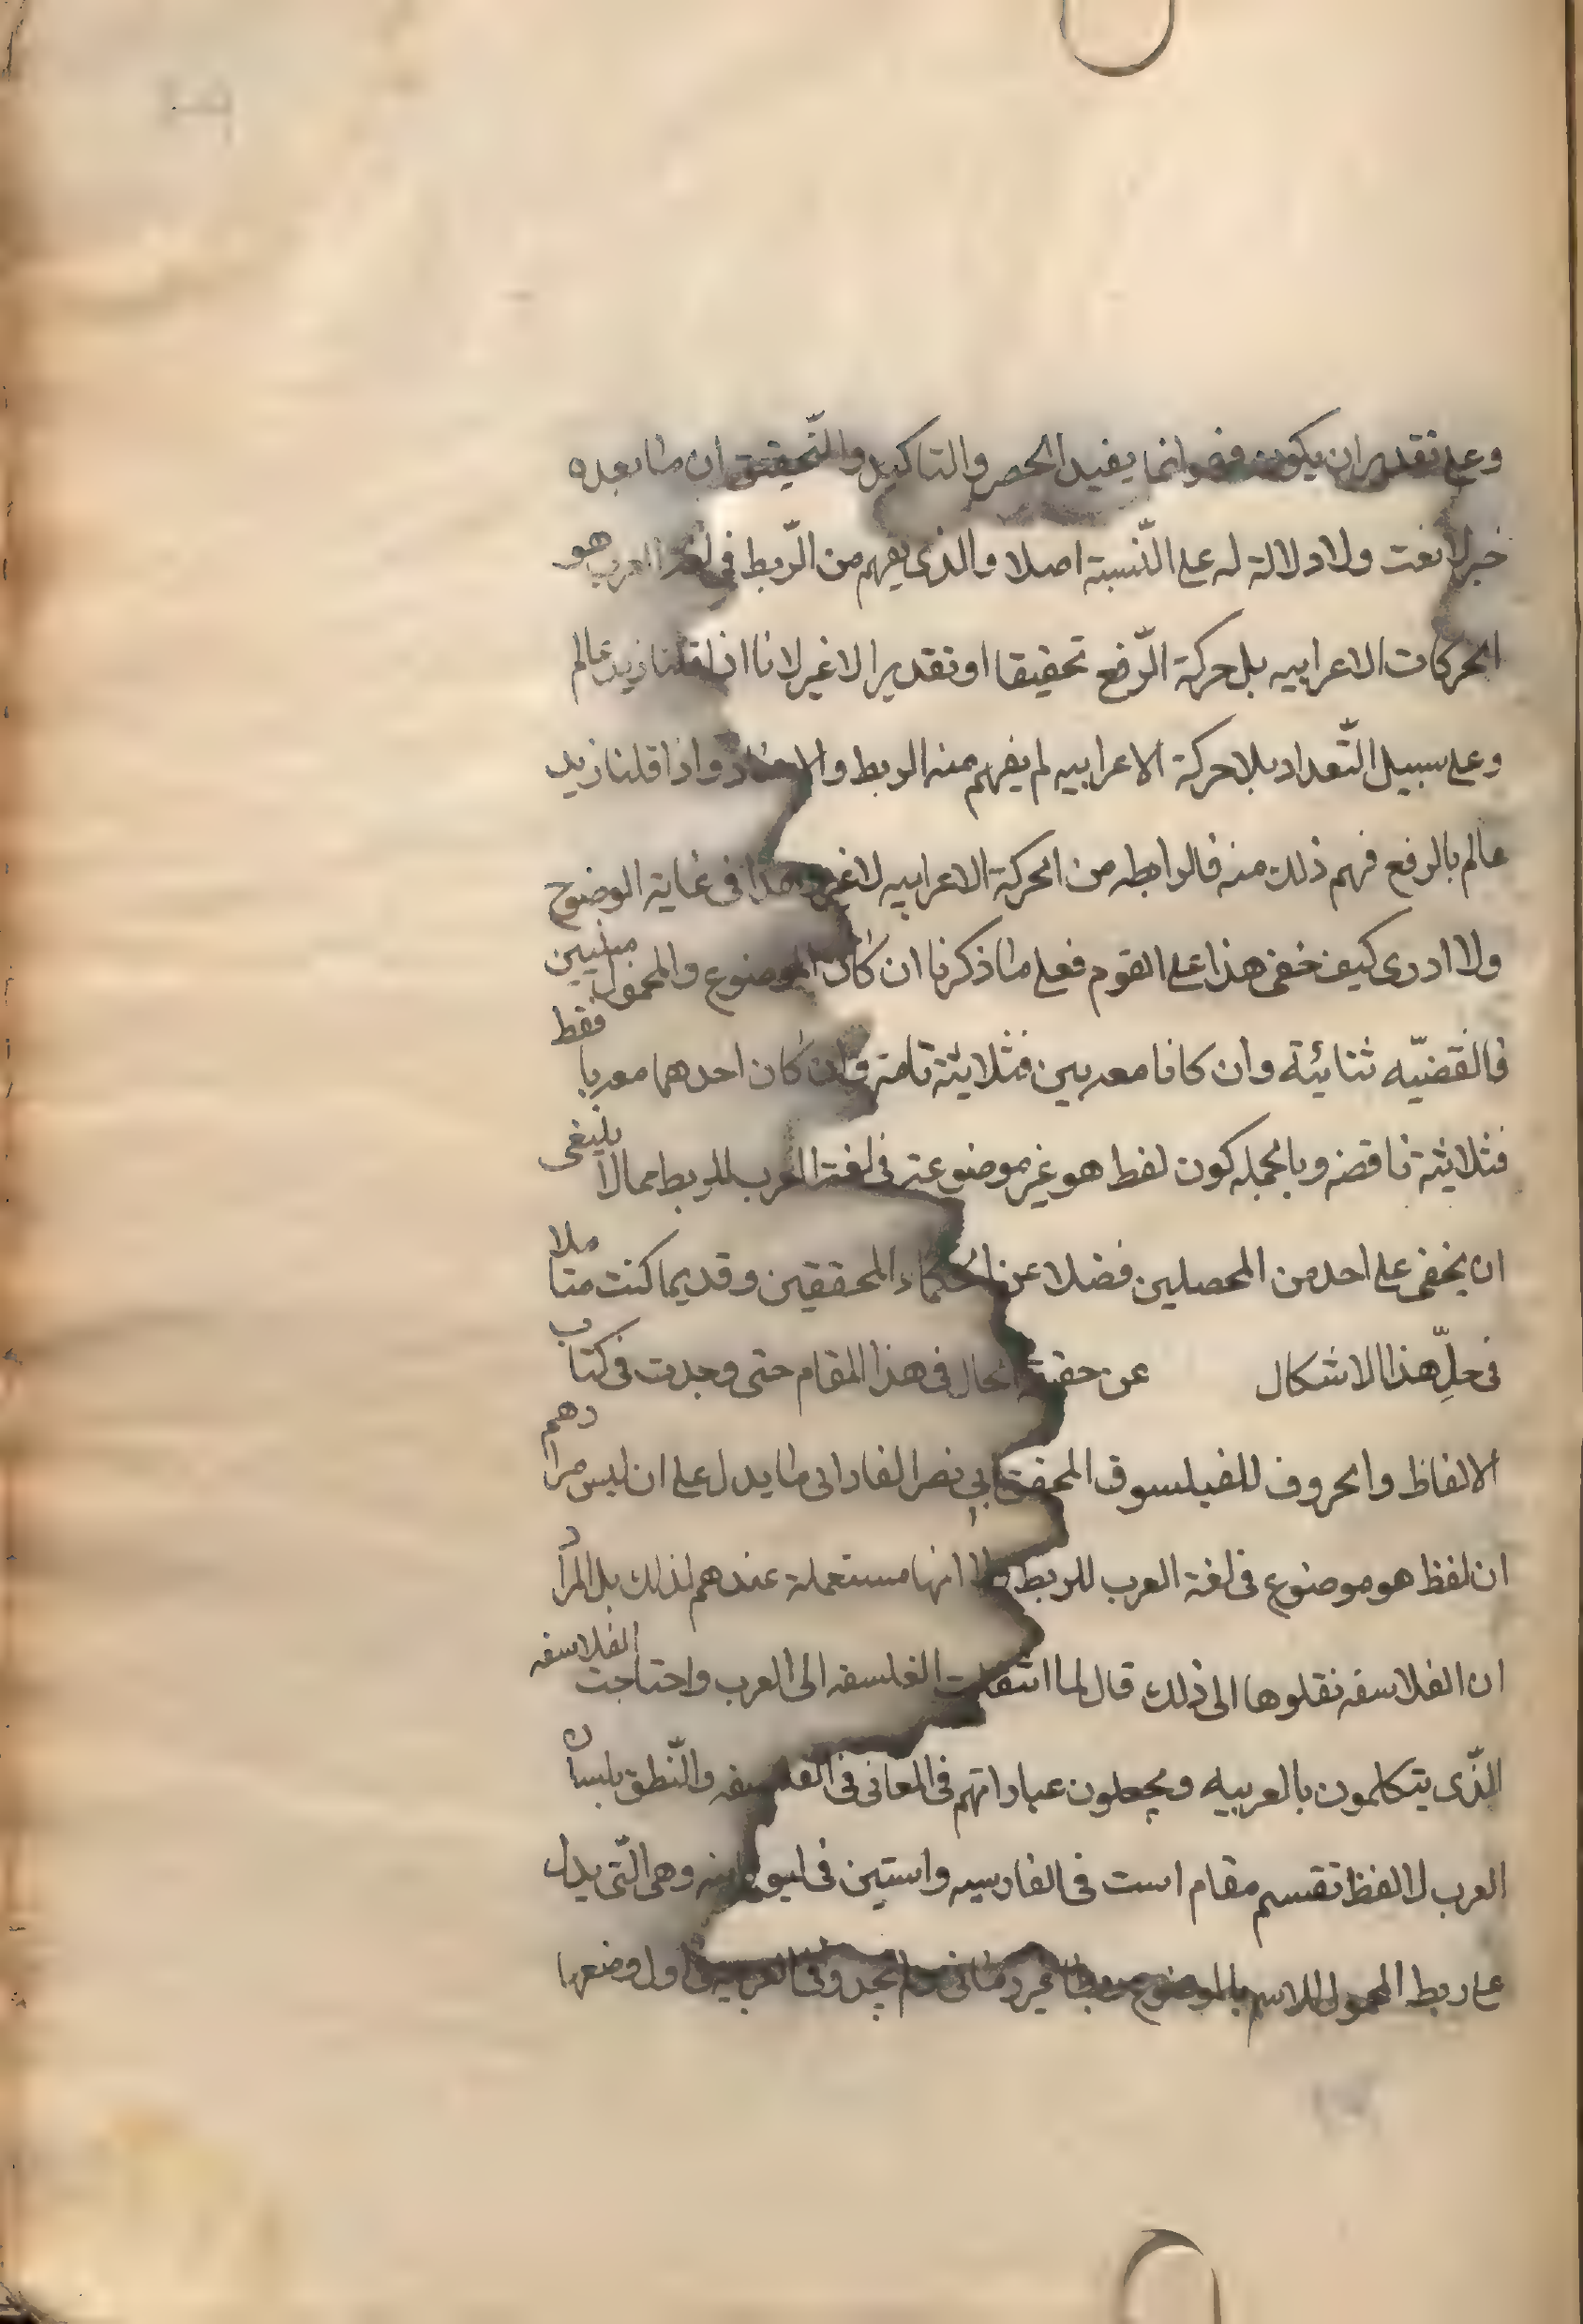 وعلى تقدير ان يكون فهو انما يفيد الحصر والتاكيد والتّحقيق ان ما بعده
خبر لا نعت ولا دلالة له على النّسبة اصلا والذى يفهم من الرّبط في لغة العرب هو
الحركات الاعرابيه بل حركة الرّفع تحقيقا او تقديرا لا غير لانا اذا قلنا زيد عالم
وعلى سبيل التّعداد بلا حركة الاعرابيه لم يفهم منه الربط والاسناد واذا قلنا زيد
عالم بالرفع فهم ذلك منه فالرابطه من الحركة الاعرابيه لا غير وهذا فى غاية الوضوح
ولا ادرى كيف خفى هذا على القوم فعلى ما ذكرنا ان كان الموضوع والمحمول مبنيين
فالقضيّه ثنائية وان كانا معربين فثلاثية تامة وان كان احدهما معربا فقط
فثلاثية ناقصه وبالجمله كون لفظ هو غير موضوعة فى لغة العرب للربط مما لا ينبغى
ان يخفى على احد من المحصلين فضلا عن الحكماء المحققين وقديما كنت متاملا
فى حلّ هذا الاشكال عن حقيقة الحال فى هذا المقام حتى وجدت فى كتاب
الالفاظ والحروف للفيلسوق المحقق ابي نصر الفارابى ما يدل على ان ليس مرادهم
ان لفظ هو موضوع فى لغة العرب للربط انها مستعملة عندهم لذلك بل المراد
ان الفلاسفه نقلوها الى ذلك قال لما انتقلت الفلسفه الى العرب واحتاجت الفلاسفه
الذّى يتكلمون بالعربيه ويجعلون عباراتهم فى المعانى فى الفلسفه والنّطق بلسان
العرب لالفظ تقسم مقام است فى الفارسيه واستين فى اليونانيه وهى الّتى يدل
على ربط المحمول للاسم بالموضوع ربطا غير زمانى فلم يجدو فى العربية اول وضعها